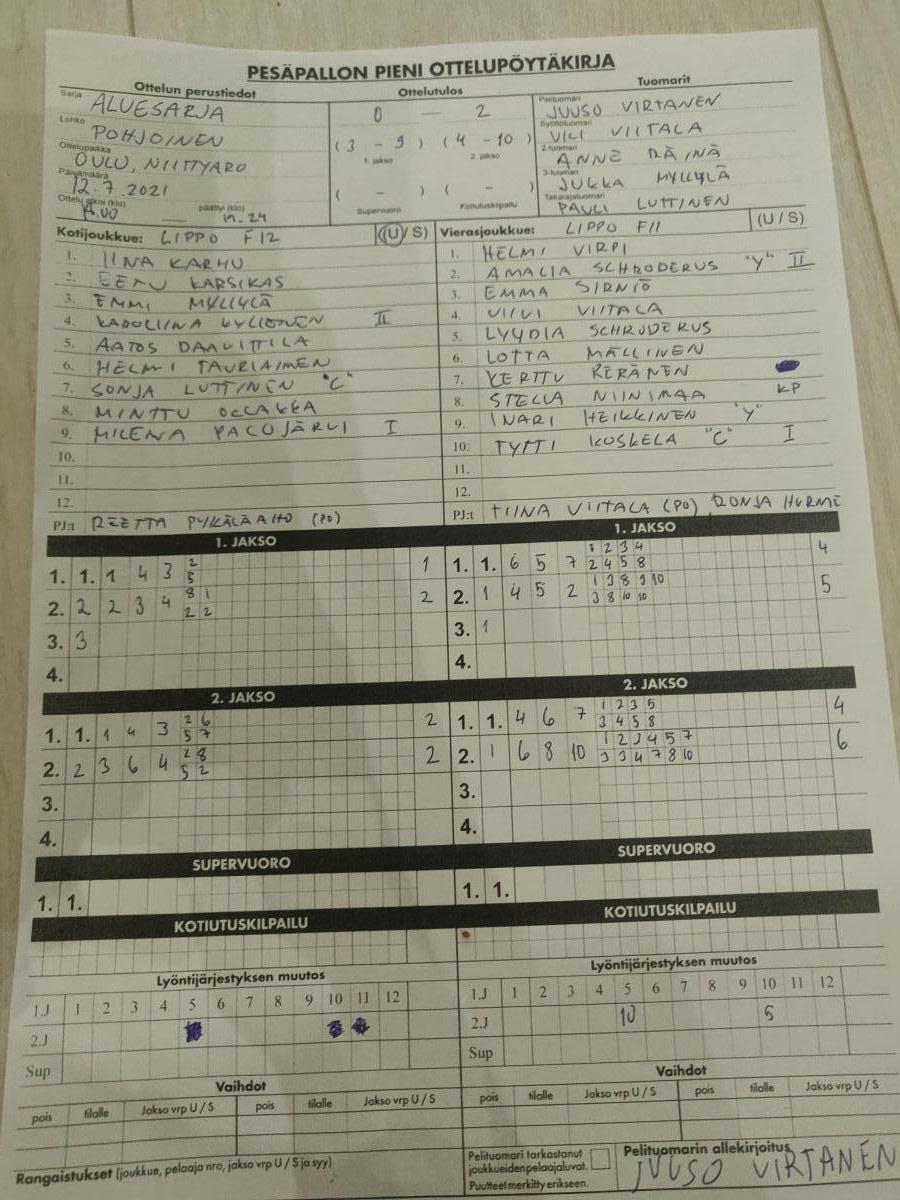 PESÄPALLON PIENI OTTELUPÖYTÄKIRJA
Ottelun perustiedot Ottelutulos Tuomarit
Sarja ALUESARJA
Lohko POHJOINEN
Ottelupaikka OULU, NIITTYARO
Päivämäärä 12.7.2021
Ottelu alkoi (klo) 14.00 päättyi (klo) 17.24
0 — 2
(3 - 9) (4 - 10)
1. jakso 2. jakso
( - ) ( - )
Supervuoro Kotiutuskilpailu
Pelituomari JUUSO VIRTANEN
Syöttötuomari VILI VIITALA
2-tuomari ANNE RÄINÄ
3-tuomari JUKKA MYLLYLÄ
Takarajatuomari PAULI LUTTINEN
Kotijoukkue: LIPPO F12 (U/S)
1. IINA KARHU
2. EETU KARSIKAS
3. EMMI MYLLYLÄ
4. KAROLIINA KYLLÖNEN II
5. AATOS DAAVITTILA
6. HELMI TAURIAINEN
7. SONJA LUTTINEN "C"
8. MINTTU OLLAKKA
9. MILENA PALOJÄRVI I
10.
11.
12.
PJ:t REETTA PYKÄLÄAHO (PO)
Vierasjoukkue: LIPPO F11 (U/S)
1. HELMI VIRPI
2. AMALIA SCHRODERUS "Y" II
3. EMMA SIRNIÖ
4. VIIVI VIITALA
5. LYYDIA SCHRODERUS
6. LOTTA MÄLLINEN
7. KERTTU KERÄNEN
8. STELLA NIINIMAA KP
9. INARI HEIKKINEN "Y"
10. TYTTI KOSKELA "C" I
11.
12.
PJ:t TIINA VIITALA (PO) RONJA HURME
1. JAKSO
1. 1. 1 4 3 2 1
5
2. 2 2 3 4 8 1 2
2 2
3. 3
4.
1. JAKSO
1. 1. 6 5 7 1 2 3 4 4
2 4 5 8
2. 1 4 5 2 1 3 8 9 10 5
3 8 10 10
3. 1
4.
2. JAKSO
1. 1. 1 4 3 2 6 2
5 7
2. 2 3 6 4 2 8 2
5 2
3.
4.
2. JAKSO
1. 1. 4 6 7 1 2 3 5 4
3 4 5 8
2. 1 6 8 10 1 2 3 4 5 7 6
3 3 4 7 8 10
3.
4.
SUPERVUORO
1. 1.
SUPERVUORO
1. 1.
KOTIUTUSKILPAILU
KOTIUTUSKILPAILU
Lyöntijärjestyksen muutos
1.J 1 2 3 4 5 6 7 8 9 10 11 12
2.J
Sup
Lyöntijärjestyksen muutos
1.J 1 2 3 4 5 6 7 8 9 10 11 12
2.J 10 5
Sup
Vaihdot
pois tilalle Jakso vrp U / S pois tilalle Jakso vrp U / S
Vaihdot
pois tilalle Jakso vrp U / S pois tilalle Jakso vrp U / S
Rangaistukset (joukkue, pelaaja nro, jakso vrp U / S ja syy)
Pelituomari tarkastanut
joukkueidenpelaajaluvat.
Puutteet merkitty erikseen.
Pelituomarin allekirjoitus
JUUSO VIRTANEN